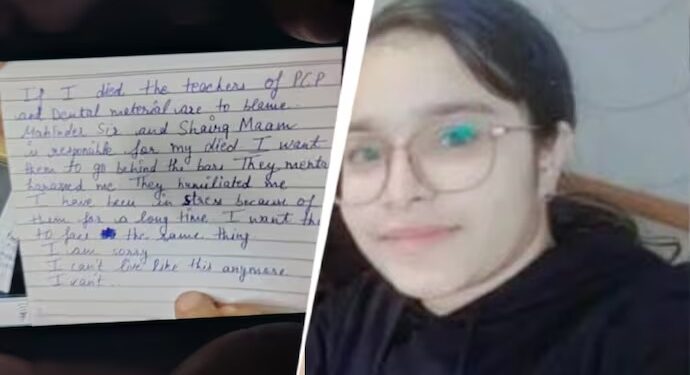 If I died the teachers of PCP
and Dental material are to blame.
Mahinder Sir and Shairg Maam
is responsible for my died I want
them to go behind the bars They menta
harassed me They humiliated me
I have been in stress because of
them for a long time. I want the
to face the same thing
I am sorry
I can't live like this anymore
I can't.